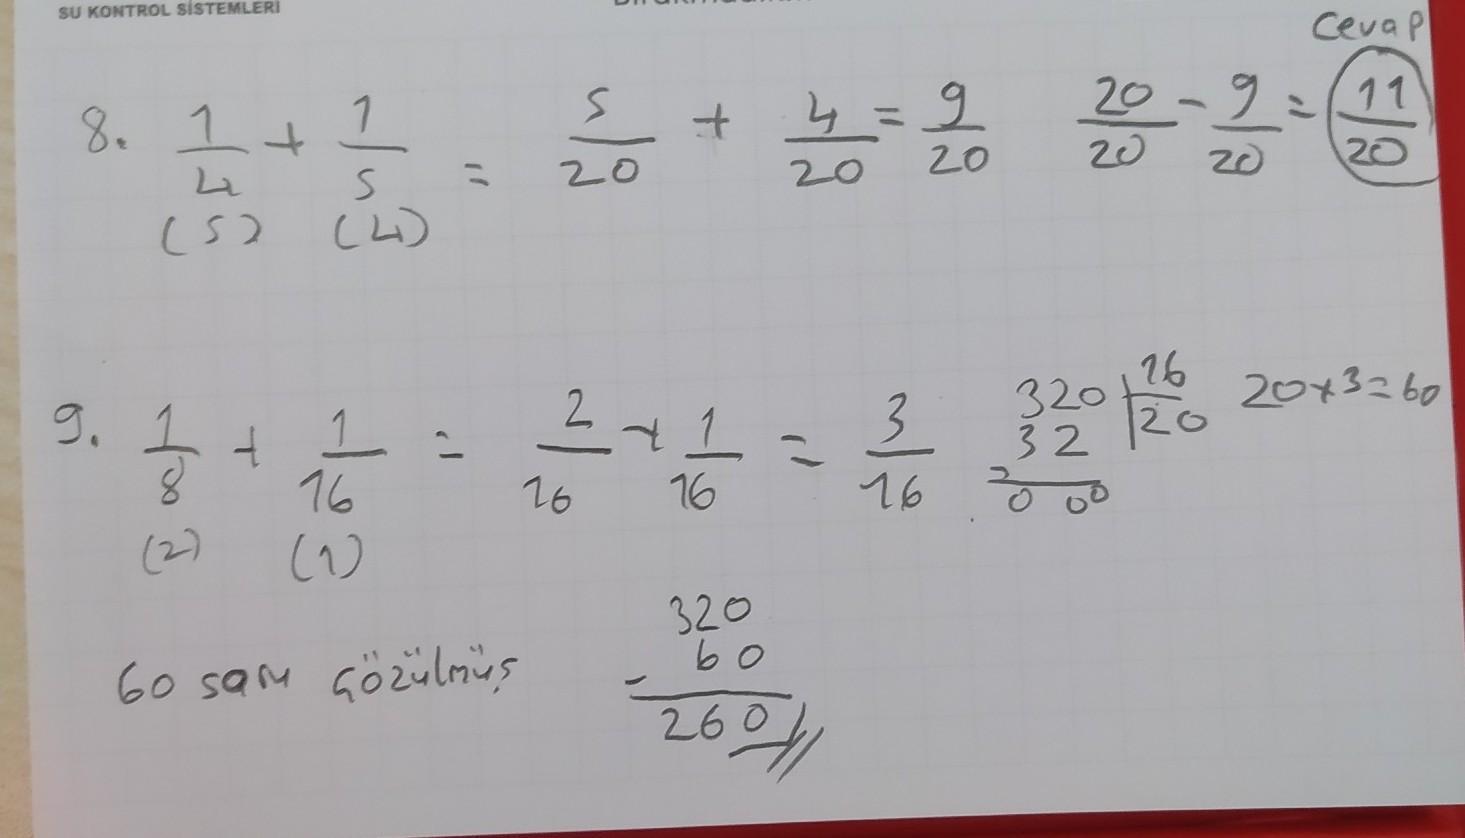 SU KONTROL SİSTEMLERİ
Cevap
8. 1/4 + 1/5 = 5/20 + 4/20 = 9/20 20/20 - 9/20 = 11/20
(5) (4)
9. 1/8 + 1/16 = 2/16 + 1/16 = 3/16 320 | 16 20x3=60
(2) (1) 32 20
- 0 00
60 soru çözülmüş
320
60
-
260